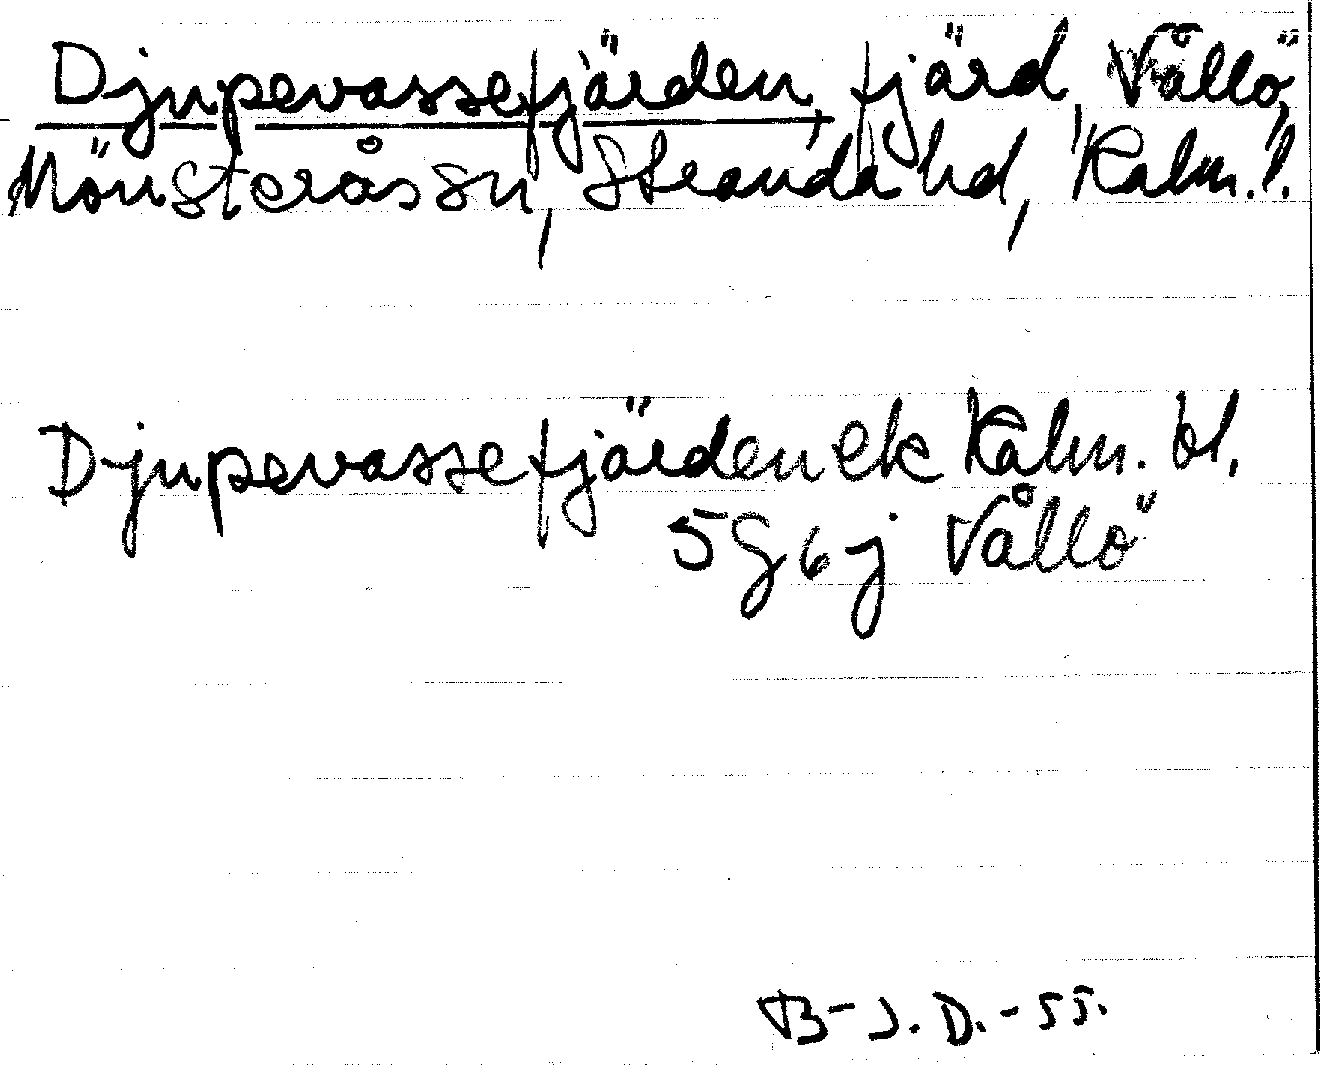 Djupevassefjärden, fjärd, Vållö,
Mönsterås sn, Stranda hd, Kalm. l.
Djupevassefjärden ek Kalm. bl.
5 G 6 j Vållö
B-J. D.-55.